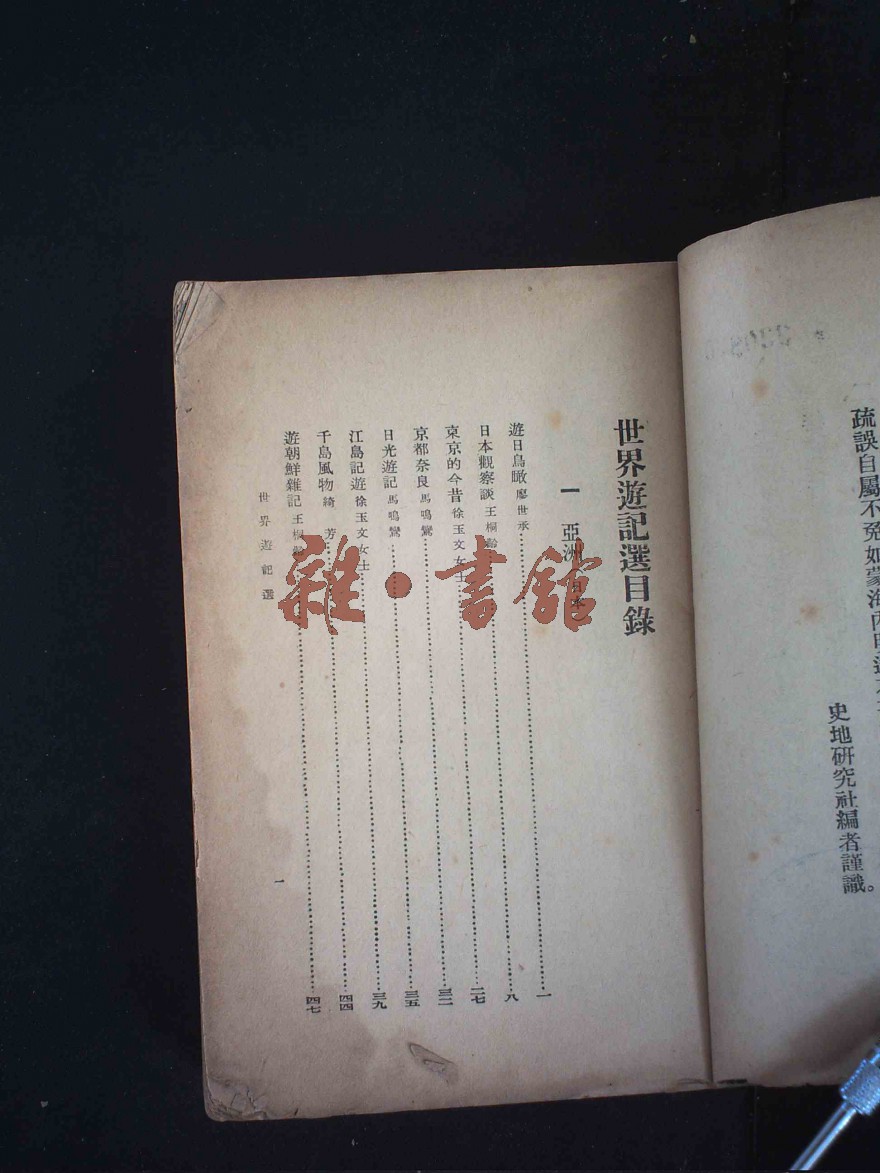 疏誤自屬不免如蒙海內
史地研究社編者謹識。
世界遊記選目錄
一 亞洲 日本
遊日鳥瞰 廖世承……一
日本觀察談 王桐齡……八
東京的今昔 徐玉文女士……二七
京都奈良 馬鳴鸞……三二
日光遊記 馬鳴鸞……三五
江島記遊 徐玉文女士……三九
千島風物 綺芳……四四
遊朝鮮雜記 王桐……四七
世界遊記選
一
雜·書館